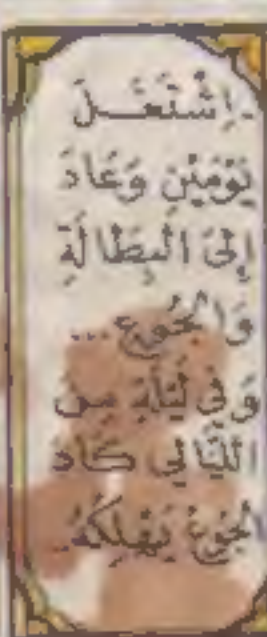 .اِشْتَغَـــلَ
يَوْمَيْنِ وَعَادَ
إِلَى الْبِطَالَةِ
وَالْجُوعِ ...
وَفِي لَيْلَةٍ مِنَ
اللَّيَالِي كَادَ
الْجُوعُ يُهْلِكُهُ.